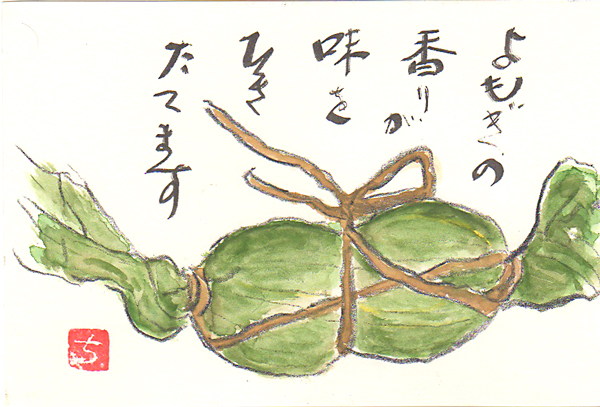 よもぎの
香りが
味を
ひき
たてます
ち